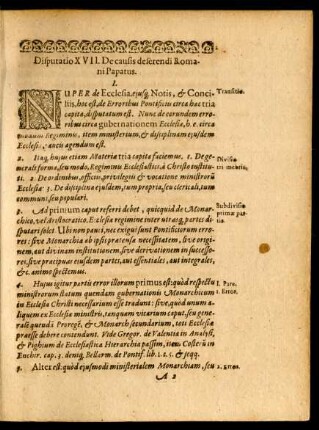 Disputatio XVII. De causis deserendi Roma-
ni Papatus.
I.
NUPER de Ecclesia, ejusq, Notis, & Conci- Transitio.
liis, hoc est, de Erroribus Pontificiis circa hæc tria
capita, disputatum est. Nunc de eorundem erro-
ribus circa gubernationem Ecclesiæ, h. e. circa
Regiminu, item ministerium, & disciplinam ejusdem
Ecclesiæ, nunc agendum est.
2. Itaq, hujus etiam Materiæ tria capita faciemus. 1. De ge- Divisio
nerali forma, seu modo, Regiminis Ecclesiastici, à Christo institu-
ti. 2. De ordinibus, officiis, privilegiis & vocatione ministrorū
Ecclesiæ 3. De disciplina ejusdem, tum propria, seu clericali, tum
communi, seu populari.
3. Ad primum caput referri debet, quicquid de Monar- Subdivisio
chico, vel Aristocratico Ecclesiæ regimine inter utrasq, partes di- primæ par-
sputari solet. Ubi non pauci, nec exigui sunt Pontificiorum erro-
res: sive Monarchia ab ipsis prætensa necessitatem, sive origi-
nem, aut divinam institutionem, sive derivationem in successo-
res, sive præcipuas ejusdem partes, aut essentiales, aut integrales,
&c. animo spectemus.
4. Hujus igitur partis error illorum primus est: quòd respectu 1. Pare.
ministrorum statum quendam gubernationis Monarchicum 1. Error.
in Ecclesia Christi necessarium esse tradunt: sive, quòd unum a-
liquem ex Ecclesiæ ministris, tanquam vicarium caput, seu gene-
ralē quendā Proregē, & Monarchā secundarium, toti Ecclesiæ
præesse debere contendunt. Vide Gregor. de Valentia in Analysi,
& Pighium de Ecclesiastica Hierarchia passim, item Costerū in
Enchir. cap. 3. deniq, Bellarm. de Pontif. lib. 1. c. 5. & seqq.
5. Alter est: quòd ejusmodi ministerialem Monarchiam, seu 2. Error.
A 2